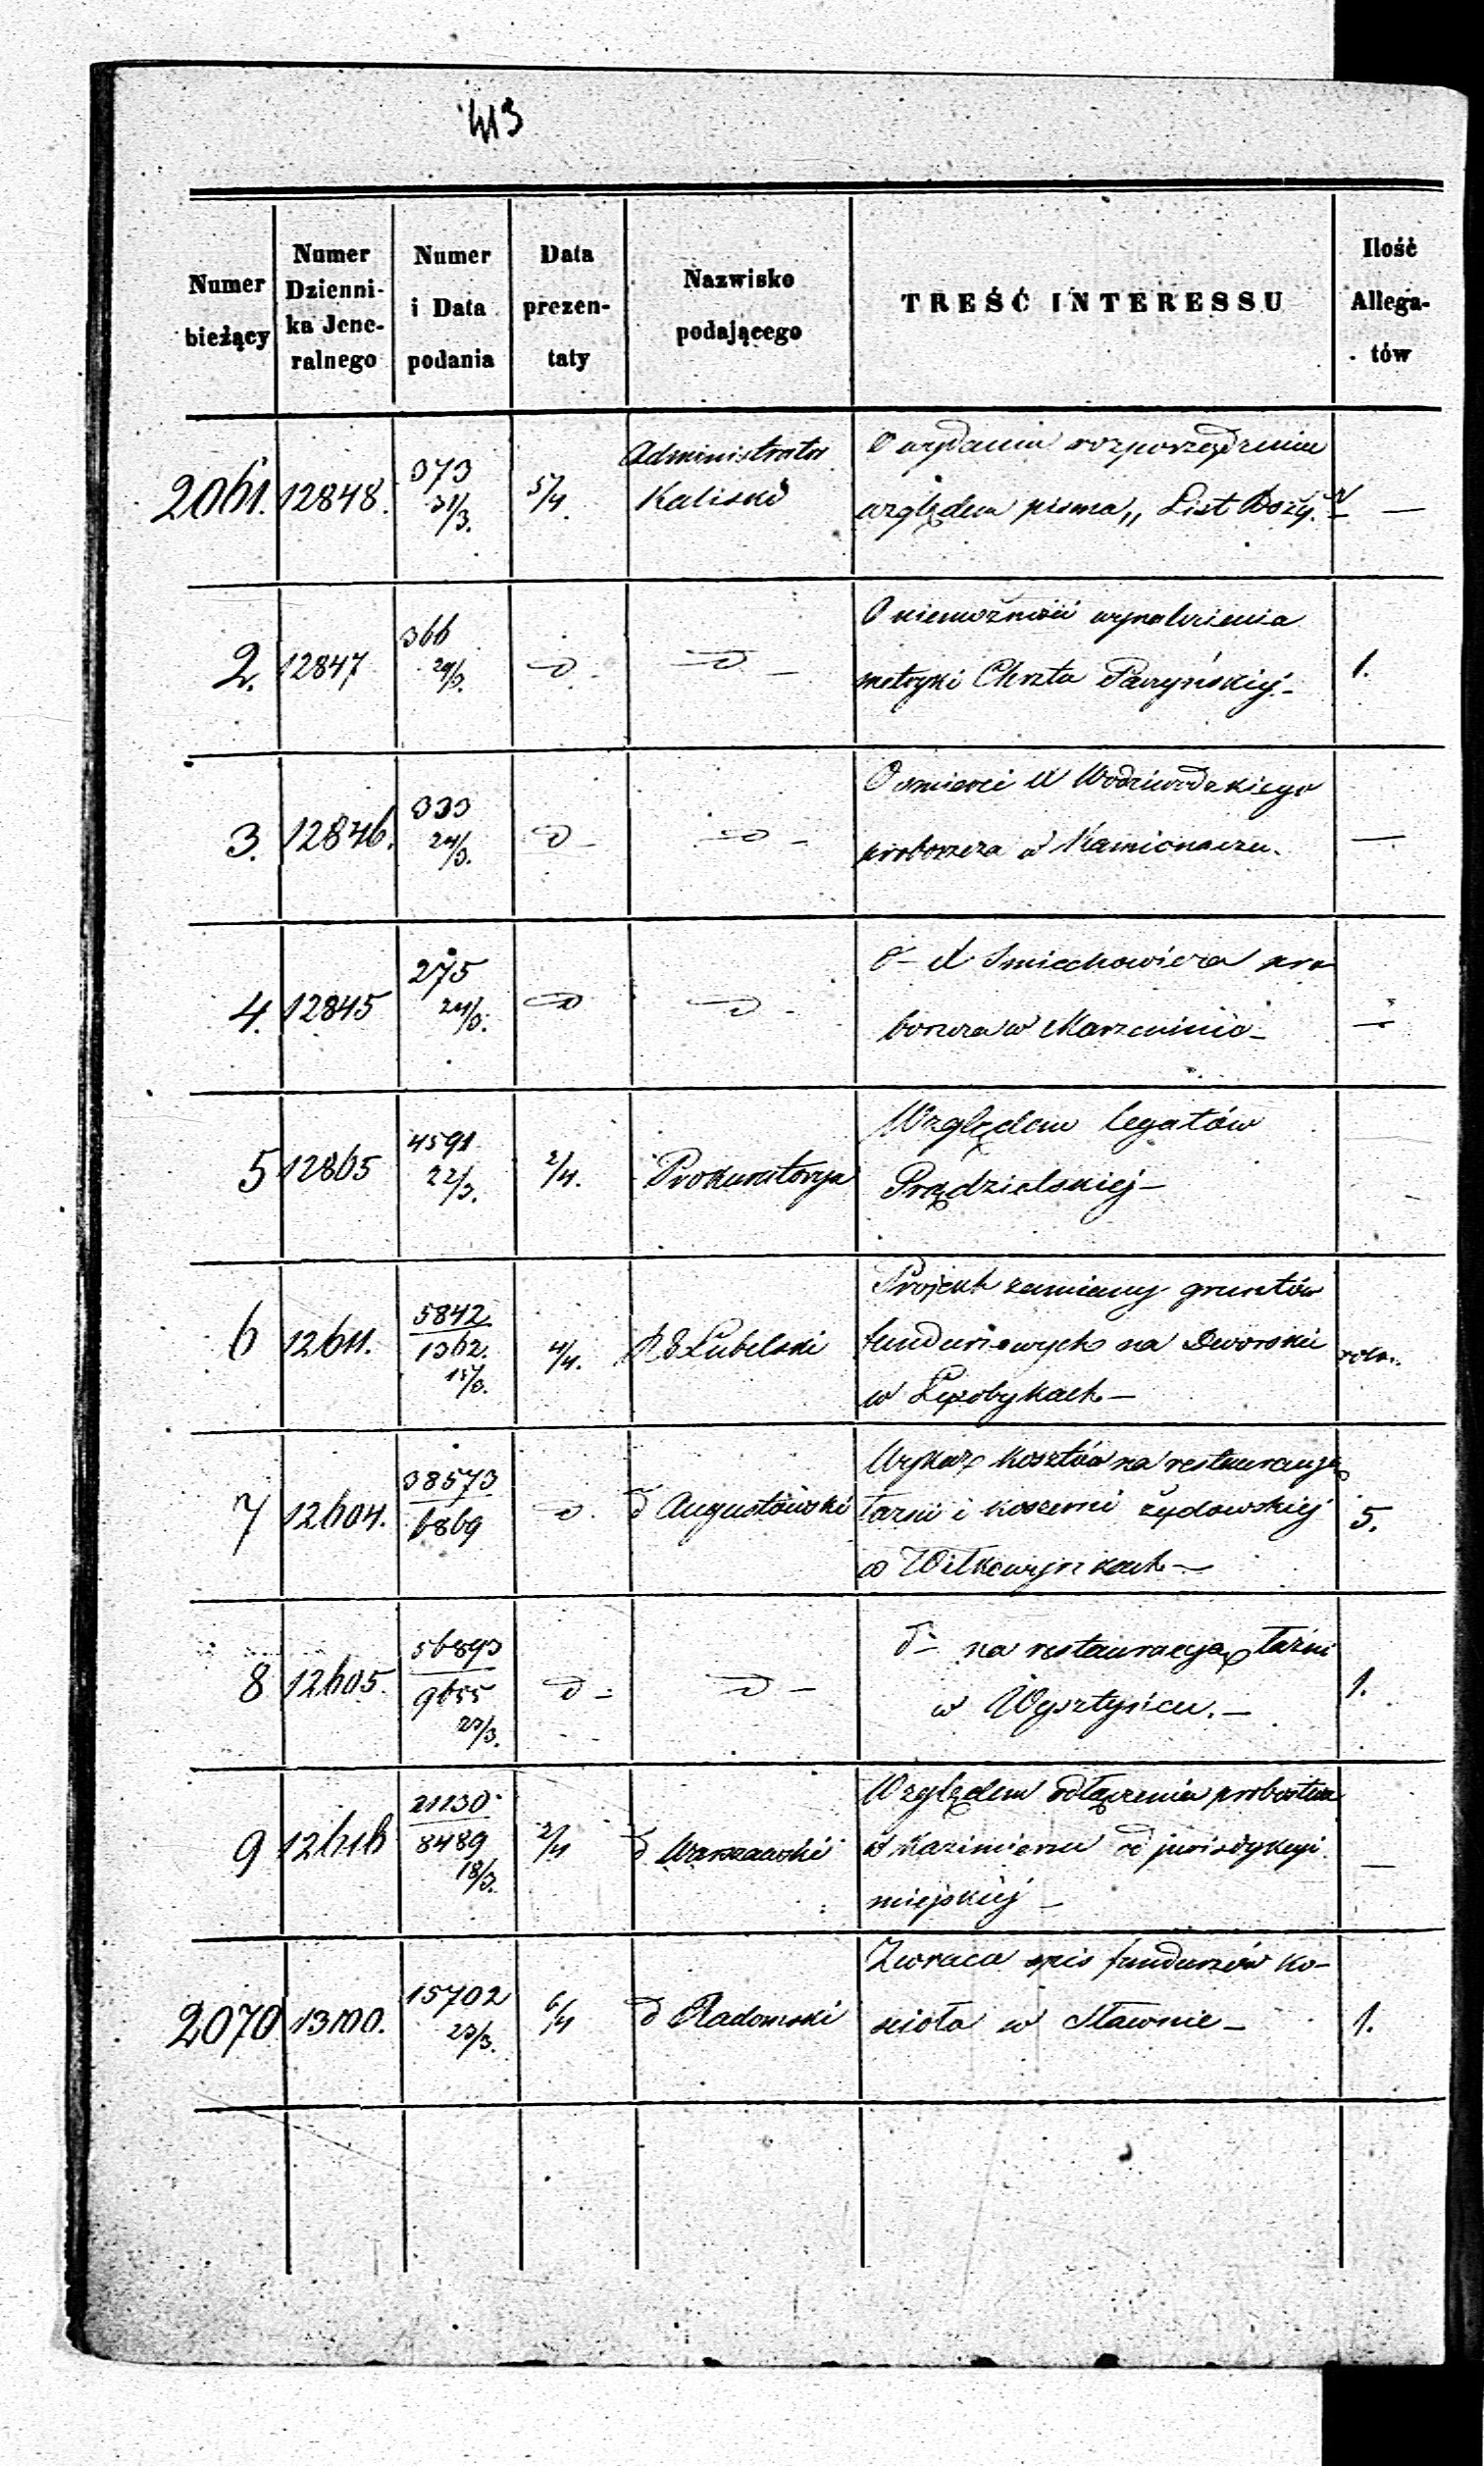 413
Numer bieżący | Numer Dzienni- ka Jene- ralnego | Numer i Data podania | Data prezen- taty | Nazwisko podającego | TREŚĆ INTERESSU | Ilość Allega- tów
2061. | 12848. | 373 31/3. | 5/4. | Administrator Kaliski | O wydaniu rozporządzenia
względem pisma „List Boży.“ | —
2. | 12847 | 366 29/3. | d | d — | O niemożności wynalezienia
metryki Chrztu Paczyńskiej — | 1.
3. | 12846. | 333 24/3. | d — | d — | O śmierci X Wodziwodzkiego
proboszcza w Kamionaczu. | —
4. | 12845 | 275 24/3. | d | d — | d° — X Smiechowicza pro
boszcza w Marzeninie — | —
5 | 12865 | 4591 22/3. | 2/4. | Prokuratorya | Względem legatów
Prądzielskiej —
6 | 12611. | 5842 1362. 15/3. | 4/4. | R G Lubelski | Projekt zamiany gruntów
funduszowych na Dworskie
w Łysobykach — |
7 | 12604. | 38573 6869 | d. | d Augustowski | Wykaz kosztów na restauracyą
łaźni i koszerni żydowskiej
w Wiłkowyszkach — | 5.
8 | 12605. | 56893 9655 23/3. | d — | d — | d° — na restauracyą łaźni
w Wysztyńcu. — | 1.
9 | 12616 | 21130 8489 18/3. | 2/4 | d Warszawski | Względem odłączenia probostwa
w Kazimierzu od jurisdykcyi
miejskiej — | —
2070 | 13100. | 15702 23/3. | 6/4 | d Radomski | Zwraca spis funduszów ko-
ścioła w Sławnie — | 1.